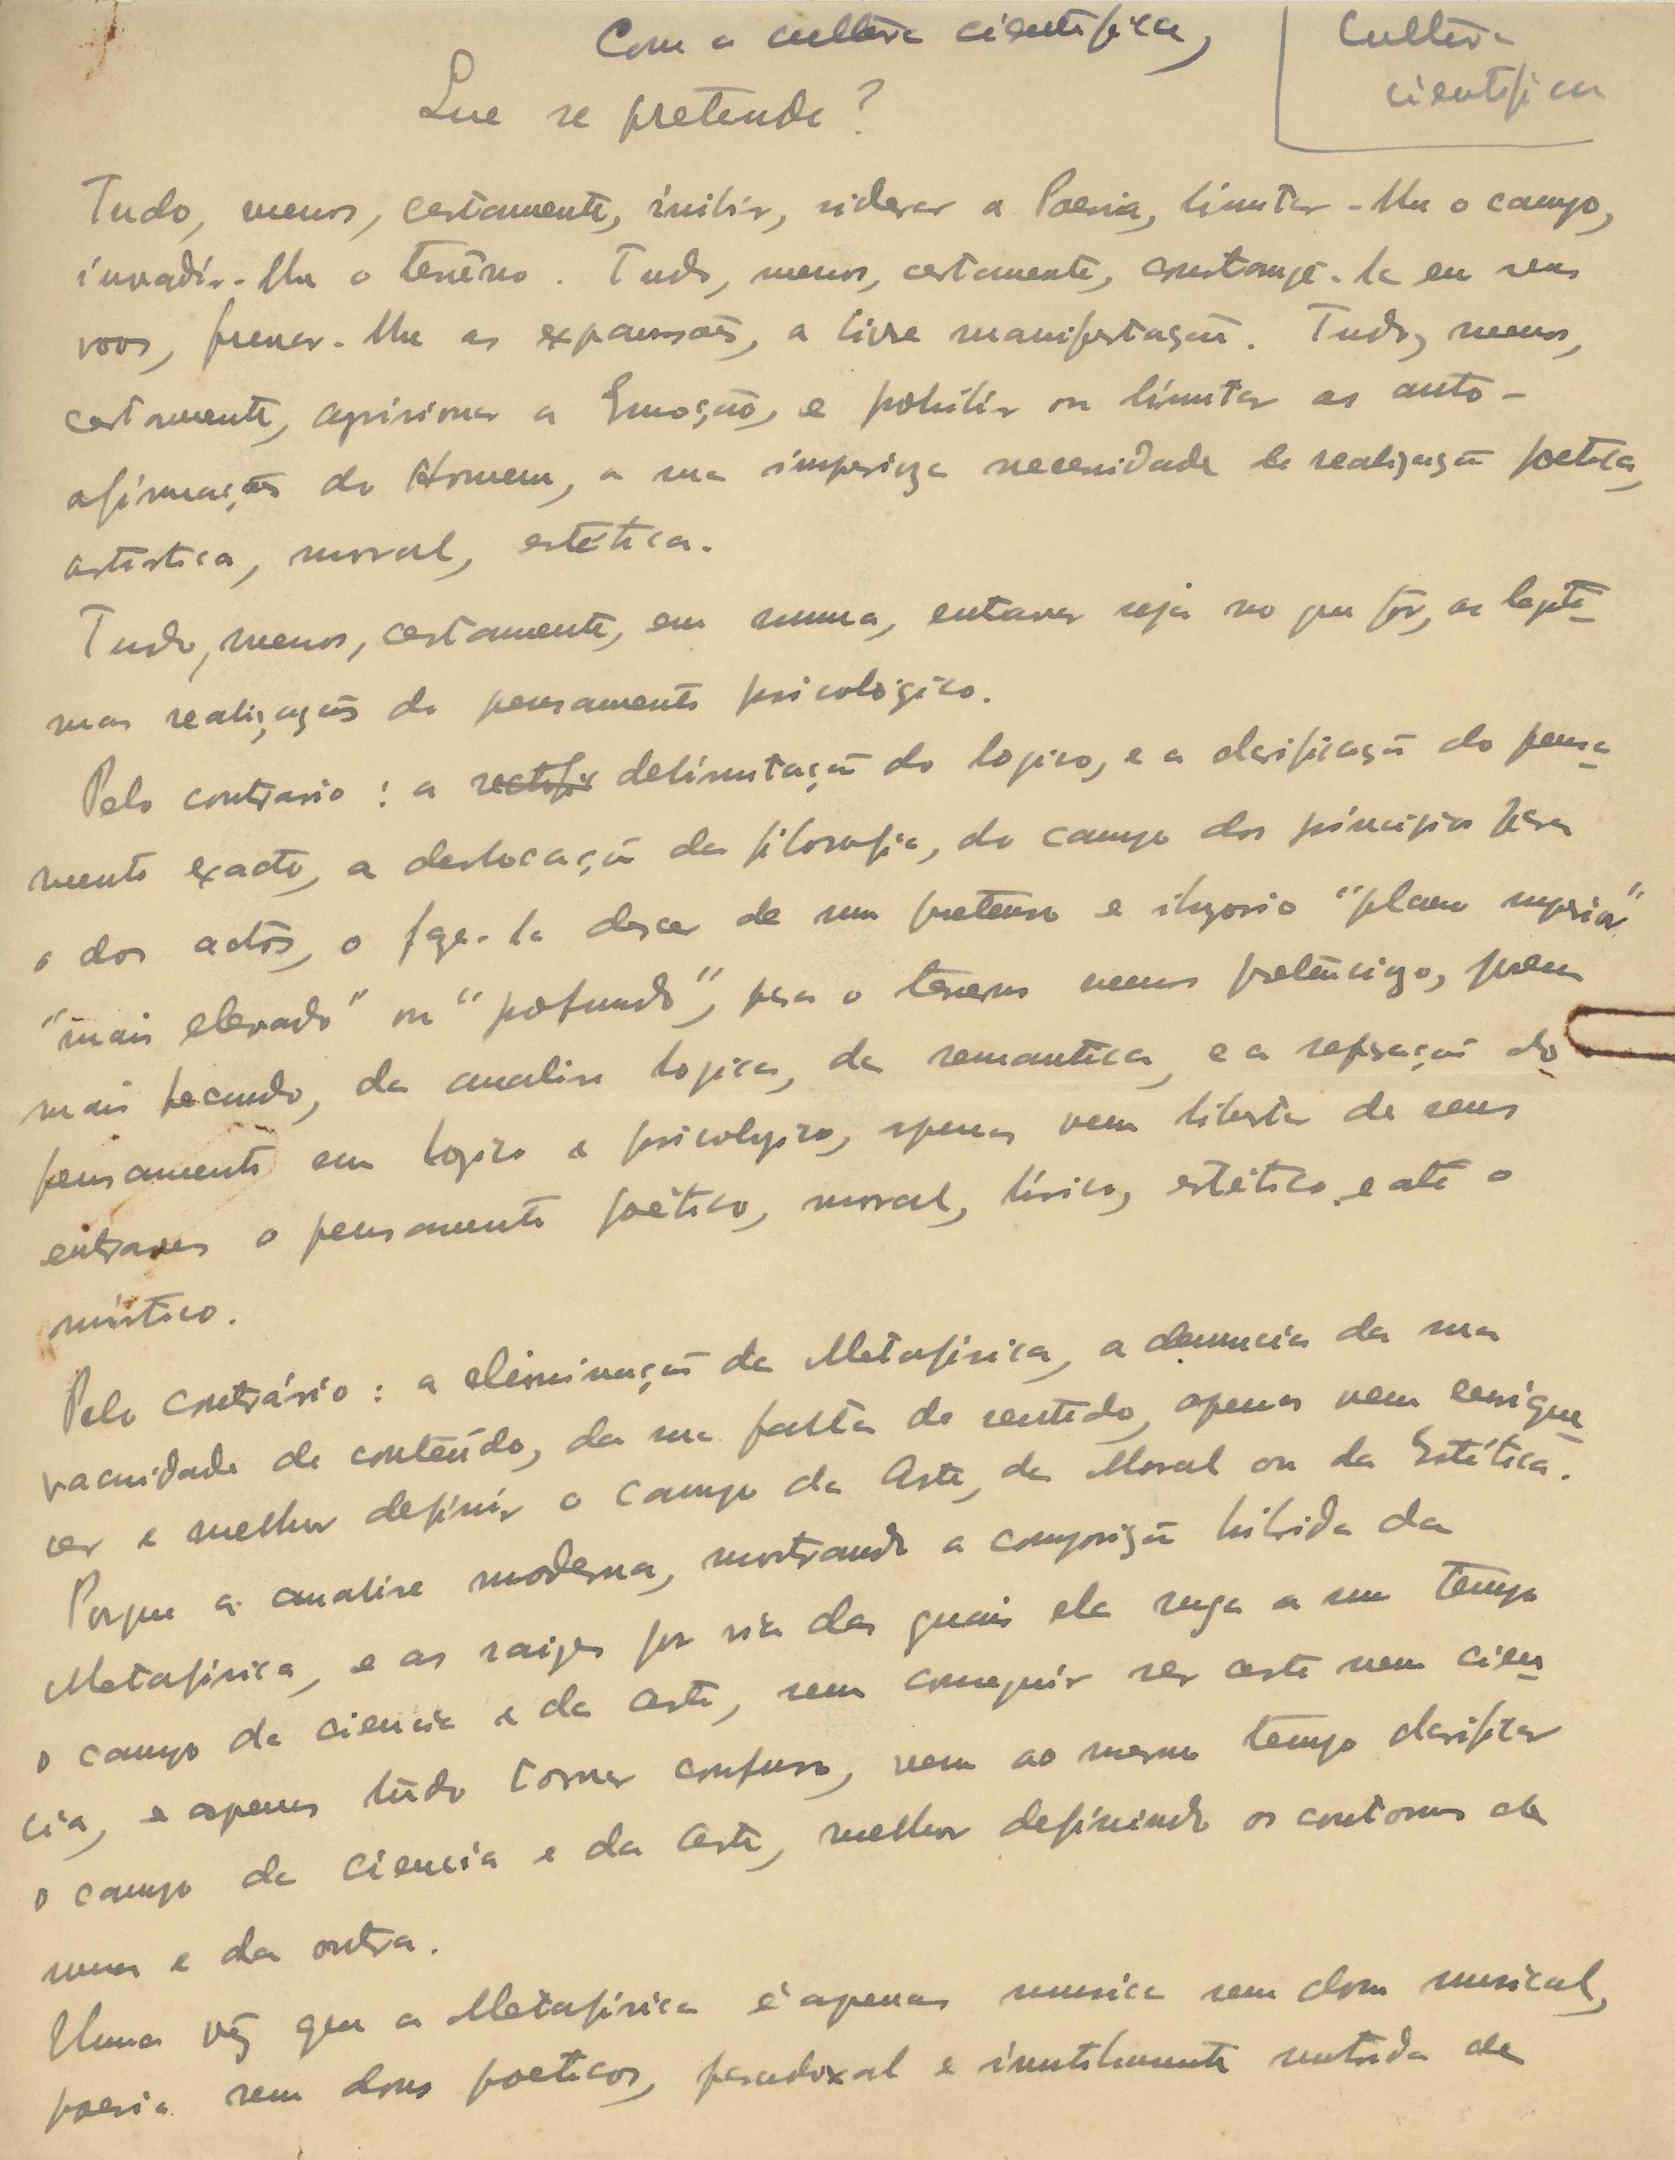 Com a cultura cientifica,
Cultura
cientifica
Que se pretende?
Tudo, menos, certamente, inibir, siderar a Poesia, limitar-lhe o campo,
invadir-lhe o terêno. Tudo, menos, certamente, constrange-la em seus
voos, frenar-lhe as expansões, a livre manifestação. Tudo, menos,
certamente, aprisionar a Emoção, e prohibir ou limitar as auto-
afirmações do Homem, a sua imperioza necessidade de realização poetica,
artistica, moral, estética.
Tudo, menos, certamente, em suma, entravar seja no que fôr, as legiti-
mas realizações do pensamento psicológico.
Pelo contrario: a rectifix delimitação do logico, e a clarificação do pensa-
mento exacto, a deslocação da filosofia, do campo dos principios para
o dos actos, o faze-la descer de um pretenso e iluzorio "plano superior"
"mais elevado" ou "profundo", para o terreno menos pretencioso, porem
mais fecundo, da analise logica, da semantica, e a separação do
pensamento em logico e psicologico, apenas vem libertar de seus
entraves o pensamento poético, moral, lirico, estético e até o
mistico.
Pelo contrário: a eliminação da Metafisica, a denuncia da sua
vacuidade de conteúdo, da sua falta de sentido, apenas vem enrique-
cer e melhor definir o campo da Arte, da Moral ou da Estética.
Porque a analise moderna, mostrando a composição hibrida da
Metafisica, e as raizes por via das quais ela suga a um tempo
o campo da ciencia e da arte, sem conseguir ser arte nem cien-
cia, e apenas tudo tornar confuso, vem ao mesmo tempo clarificar
o campo da ciencia e da arte, melhor definindo os contornos de
uma e da outra.
Uma vêz que a Metafisica é apenas musica sem dom musical,
poesia sem dons poeticos, paradoxal e inutilmente nutrida de